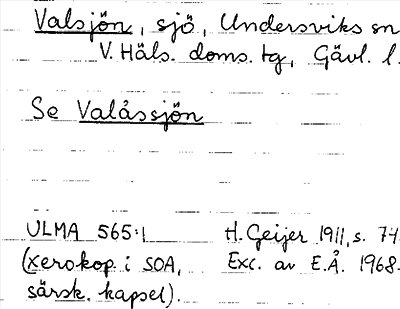 Valsjön, sjö, Undersviks sn
V. Häls. doms. tg, Gävl. l.
Se Valåssjön
ULMA 565:1 H. Geijer 1911, s. 74.
(xerokop. i SOA, Exc. av E.Å. 1968.
särsk. kapsel).